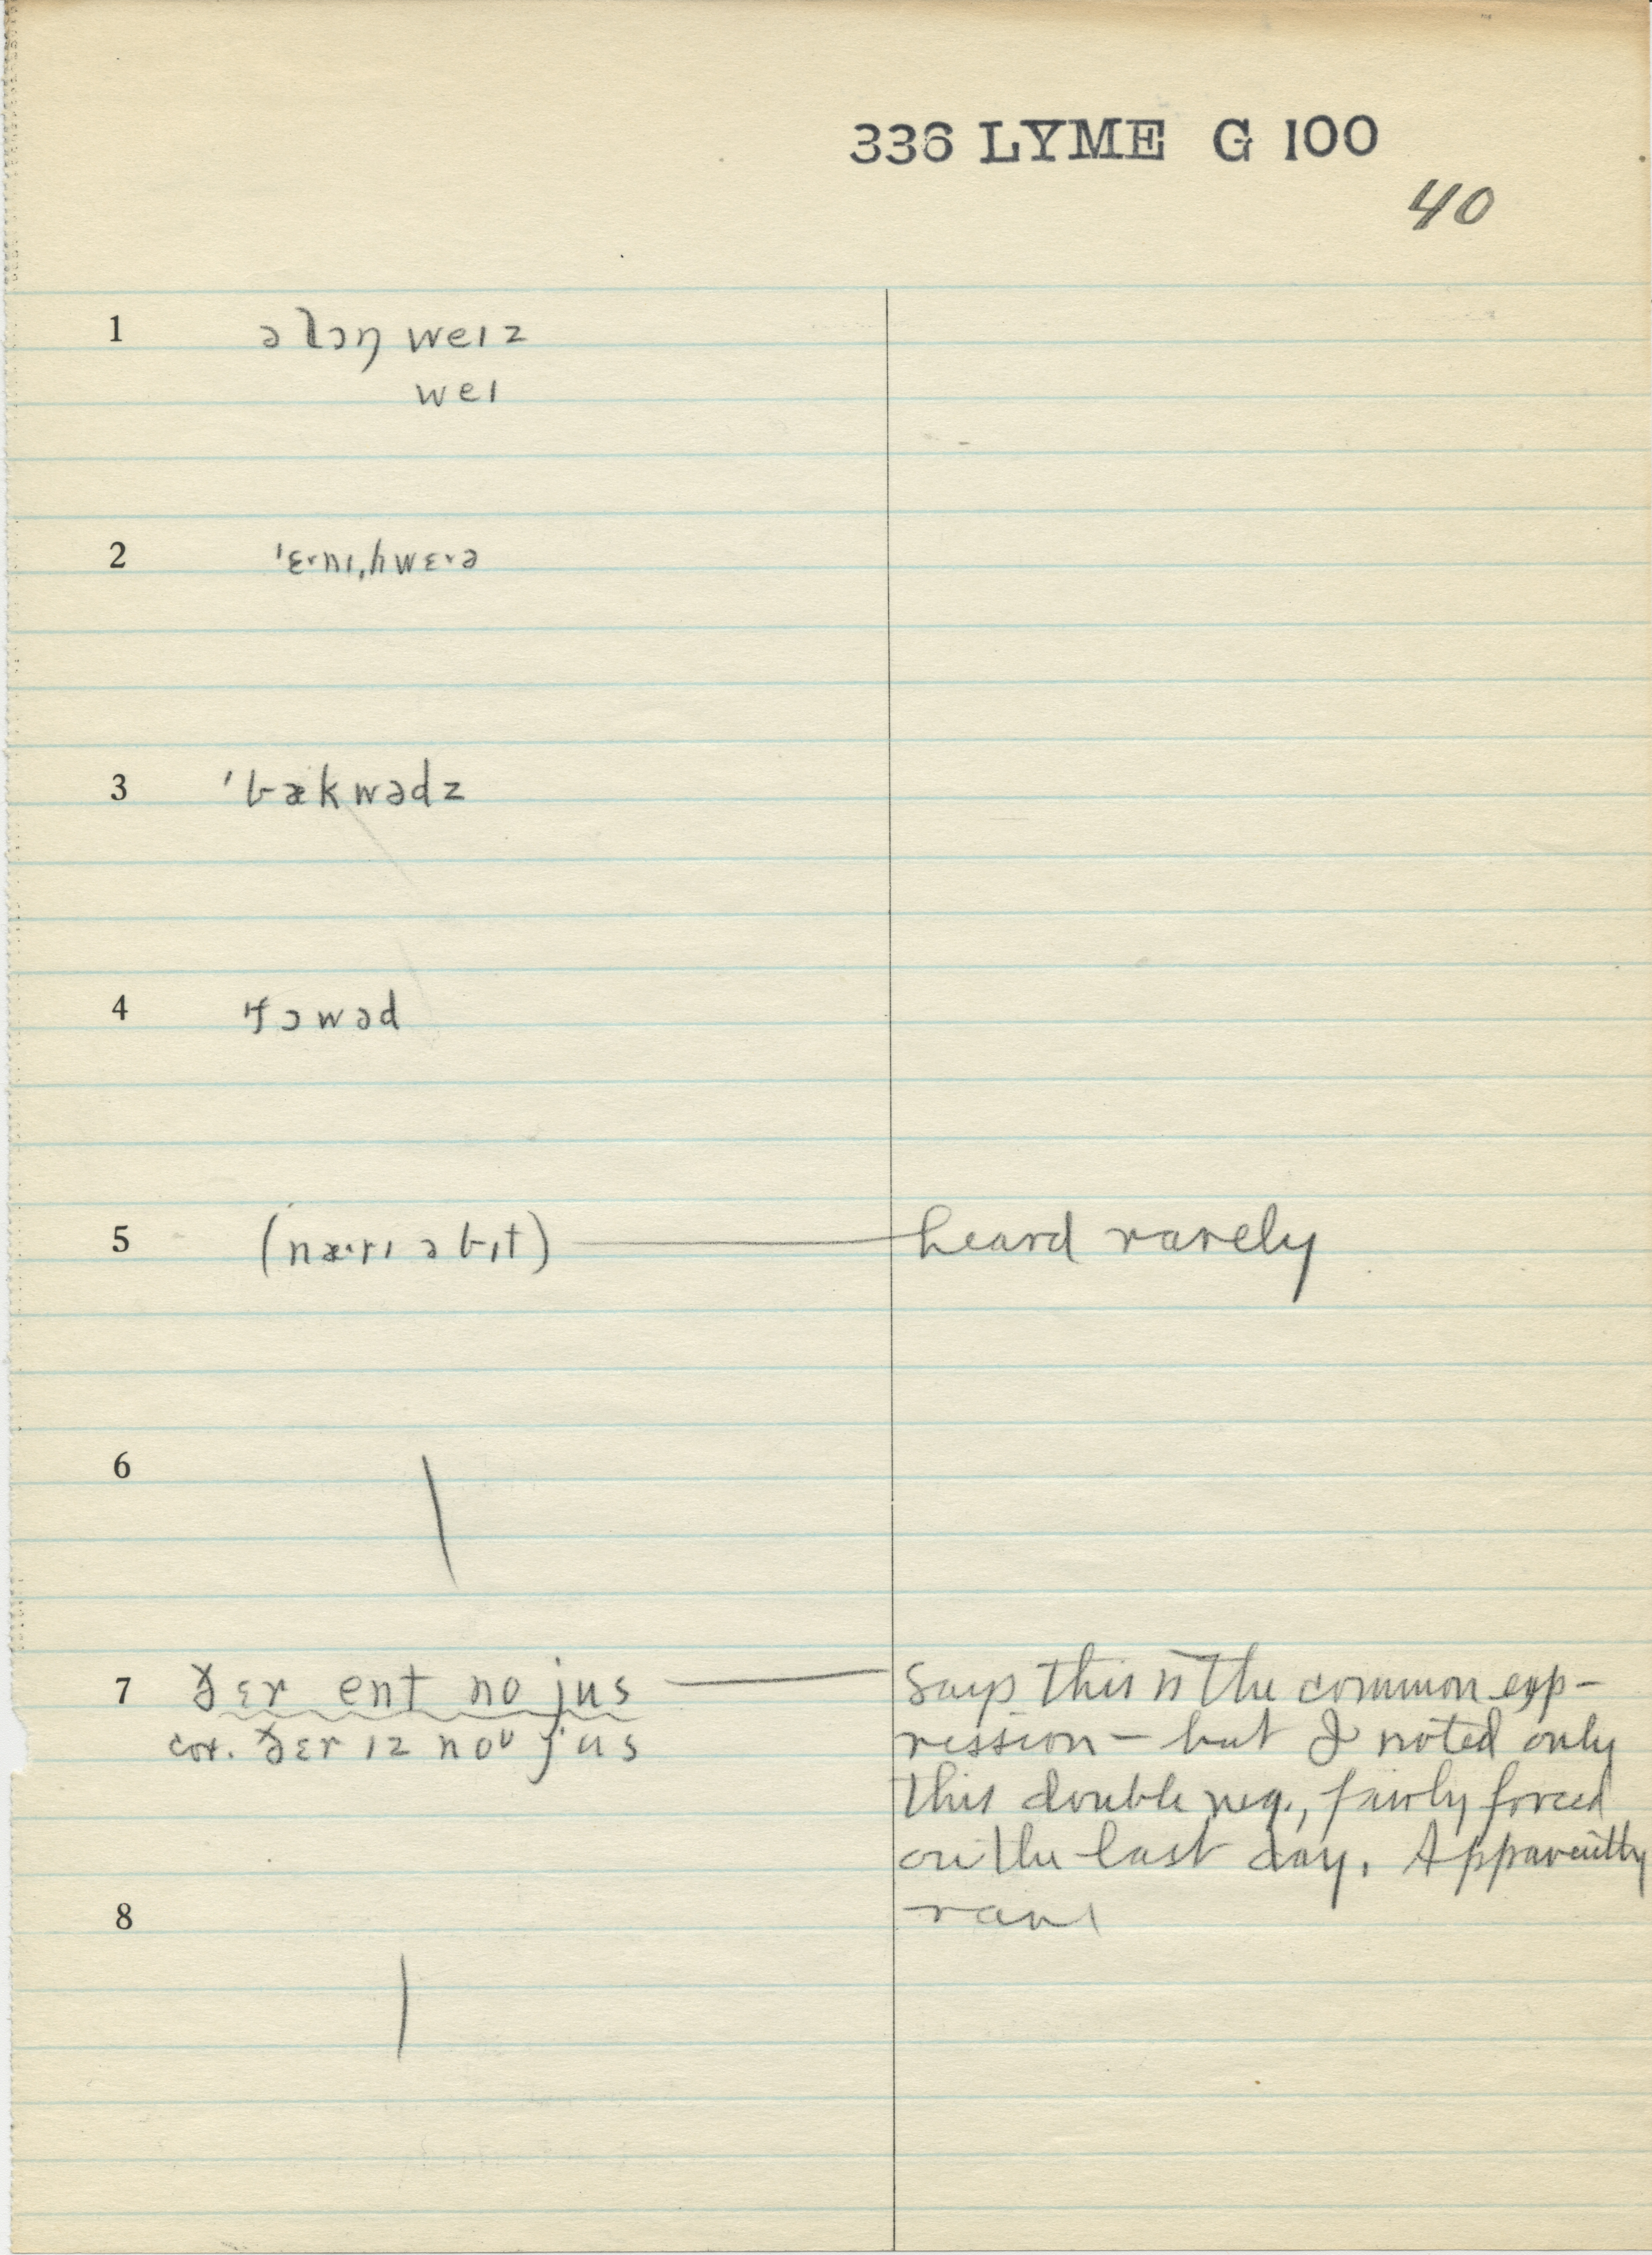 336 LYME G 100
40
1 ə lɔŋ weɪz
weɪ
2 ˈɛ˞nɪˌhwɛ˞ə
3 ˈbækwədz
4 ˈfɔwəd
5 (næ˞rɪ ə bɪt) — heard rarely
6 \
7 ðɛr ent no jus — Says this is the common exp-
cor. ðɛr ɪz noᶷ jus ression – but I noted only
this double neg., fairly forced
on the last day. Apparently
8 rare
|